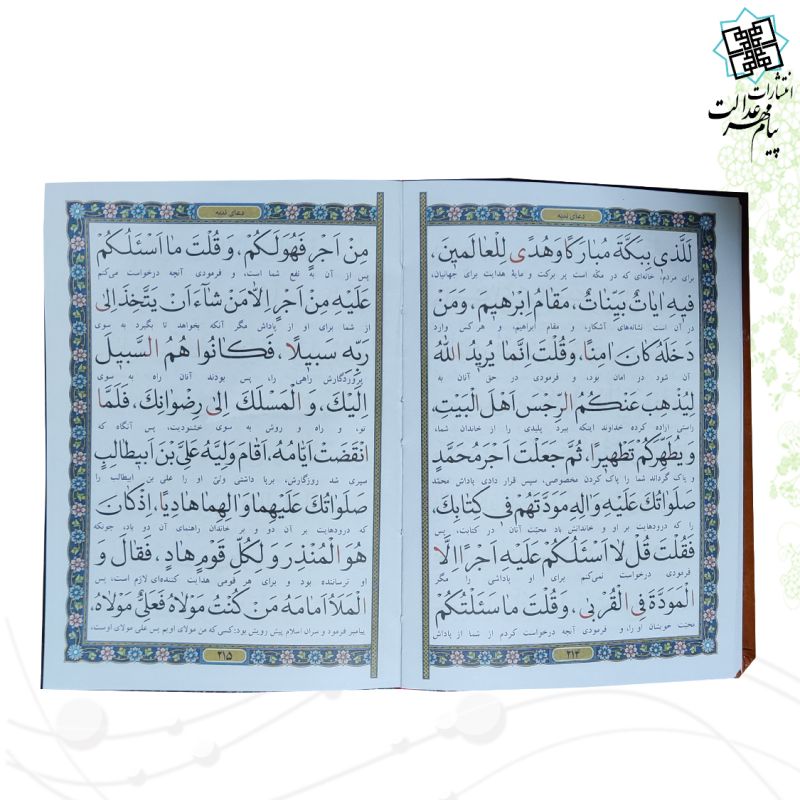 انتشارات
پیام مهر عدالت
دعای ندبه
لَلَّذی بِبَکَّةَ مُبارَکًا وَهُدًی لِلْعالَمینَ،
برای مردم؛ خانه‌ای که در مکّه است پر برکت و مایهٔ هدایت برای جهانیان،
فیهِ ایاتٌ بَیِّناتٌ، مَقامُ اِبْرهیمَ، وَمَنْ
در آن است نشانه‌های آشکار، و مقام ابراهیم، و هر کس وارد
دَخَلَهُ کانَ امِنًا، وَقُلْتَ اِنَّما یُریدُ اللهُ
آن شود در امان بود، و فرمودی در حق آنان به
لِیُذْهِبَ عَنْکُمُ الرِّجْسَ اَهْلَ الْبَیْتِ،
راستی اراده کرده خداوند اینکه ببرد پلیدی را از خاندان شما،
وَ یُطَهِّرَکُمْ تَطْهیرًا، ثُمَّ جَعَلْتَ اَجْرَ مُحَمَّدٍ
و پاک گرداند شما را پاک کردن مخصوصی، سپس قرار دادی پاداش محمّد
صَلَواتُکَ عَلَیْهِ وَالِهِ مَوَدَّتَهُمْ فی کِتابِکَ،
را که درودهایت بر او و خاندانش باد محبّت آنان در کتابت، پس
فَقُلْتَ قُلْ لا اَسْئَلُکُمْ عَلَیْهِ اَجْرًا اِلَّا
فرمودی درخواست نمی‌کنم برای او پاداشی را مگر
الْمَوَدَّةَ فِی الْقُرْبی، وَقُلْتَ ما سَئَلْتُکُمْ
محبّت خویشان او را، و فرمودی آنچه درخواست کردم از شما از پاداش
۲۱۴
دعای ندبه
مِنْ اَجْرٍ فَهُوَ لَکُمْ، وَ قُلْتَ ما اَسْئَلُکُمْ
پس از آن به نفع شما است، و فرمودی آنچه درخواست می‌کنم
عَلَیْهِ مِنْ اَجْرٍ اِلاّ مَنْ شآءَ اَنْ یَتَّخِذَ اِلی
از شما برای او از پاداش مگر آنکه بخواهد تا بگیرد به سوی
رَبِّهِ سَبیلًا، فَکانُوا هُمُ السَّبیلَ
پروردگارش راهی را، پس بودند آنان راه به سوی
اِلَیْکَ، وَ الْمَسْلَکَ اِلی رِضْوانِکَ، فَلَمَّا
تو، و راه و روش به سوی خشنودیت، پس آنگاه که
انْقَضَتْ اَیّامُهُ، اَقامَ وَلِیَّهُ عَلِیَّ بْنَ اَبیطالِبٍ
سپری شد روزگارش، برپا داشتی ولیّ او را علی بن ابیطالب را
صَلَواتُکَ عَلَیْهِما وَالِهِما هادِیًا، اِذْ کانَ
که درودهایت بر آن دو و بر خاندان راهنمای آن دو باد، چونکه
هُوَ الْمُنْذِرَ وَ لِکُلِّ قَوْمٍ هادٍ، فَقالَ وَ
او ترساننده بود و برای هر قومی هدایت کننده‌ای لازم است، پس
الْمَلَأُ اَمامَهُ مَنْ کُنْتُ مَوْلاهُ فَعَلِیٌّ مَوْلاهُ،
پیامبر فرمود و سران اسلام پیش رویش بود: کسی که من مولای اویم پس علی مولای اوست،
۲۱۵